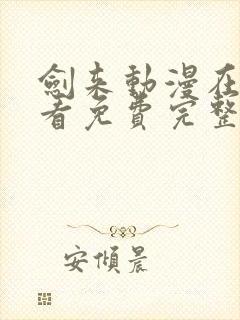 劍来動漫在
看免費完整
安傾晨